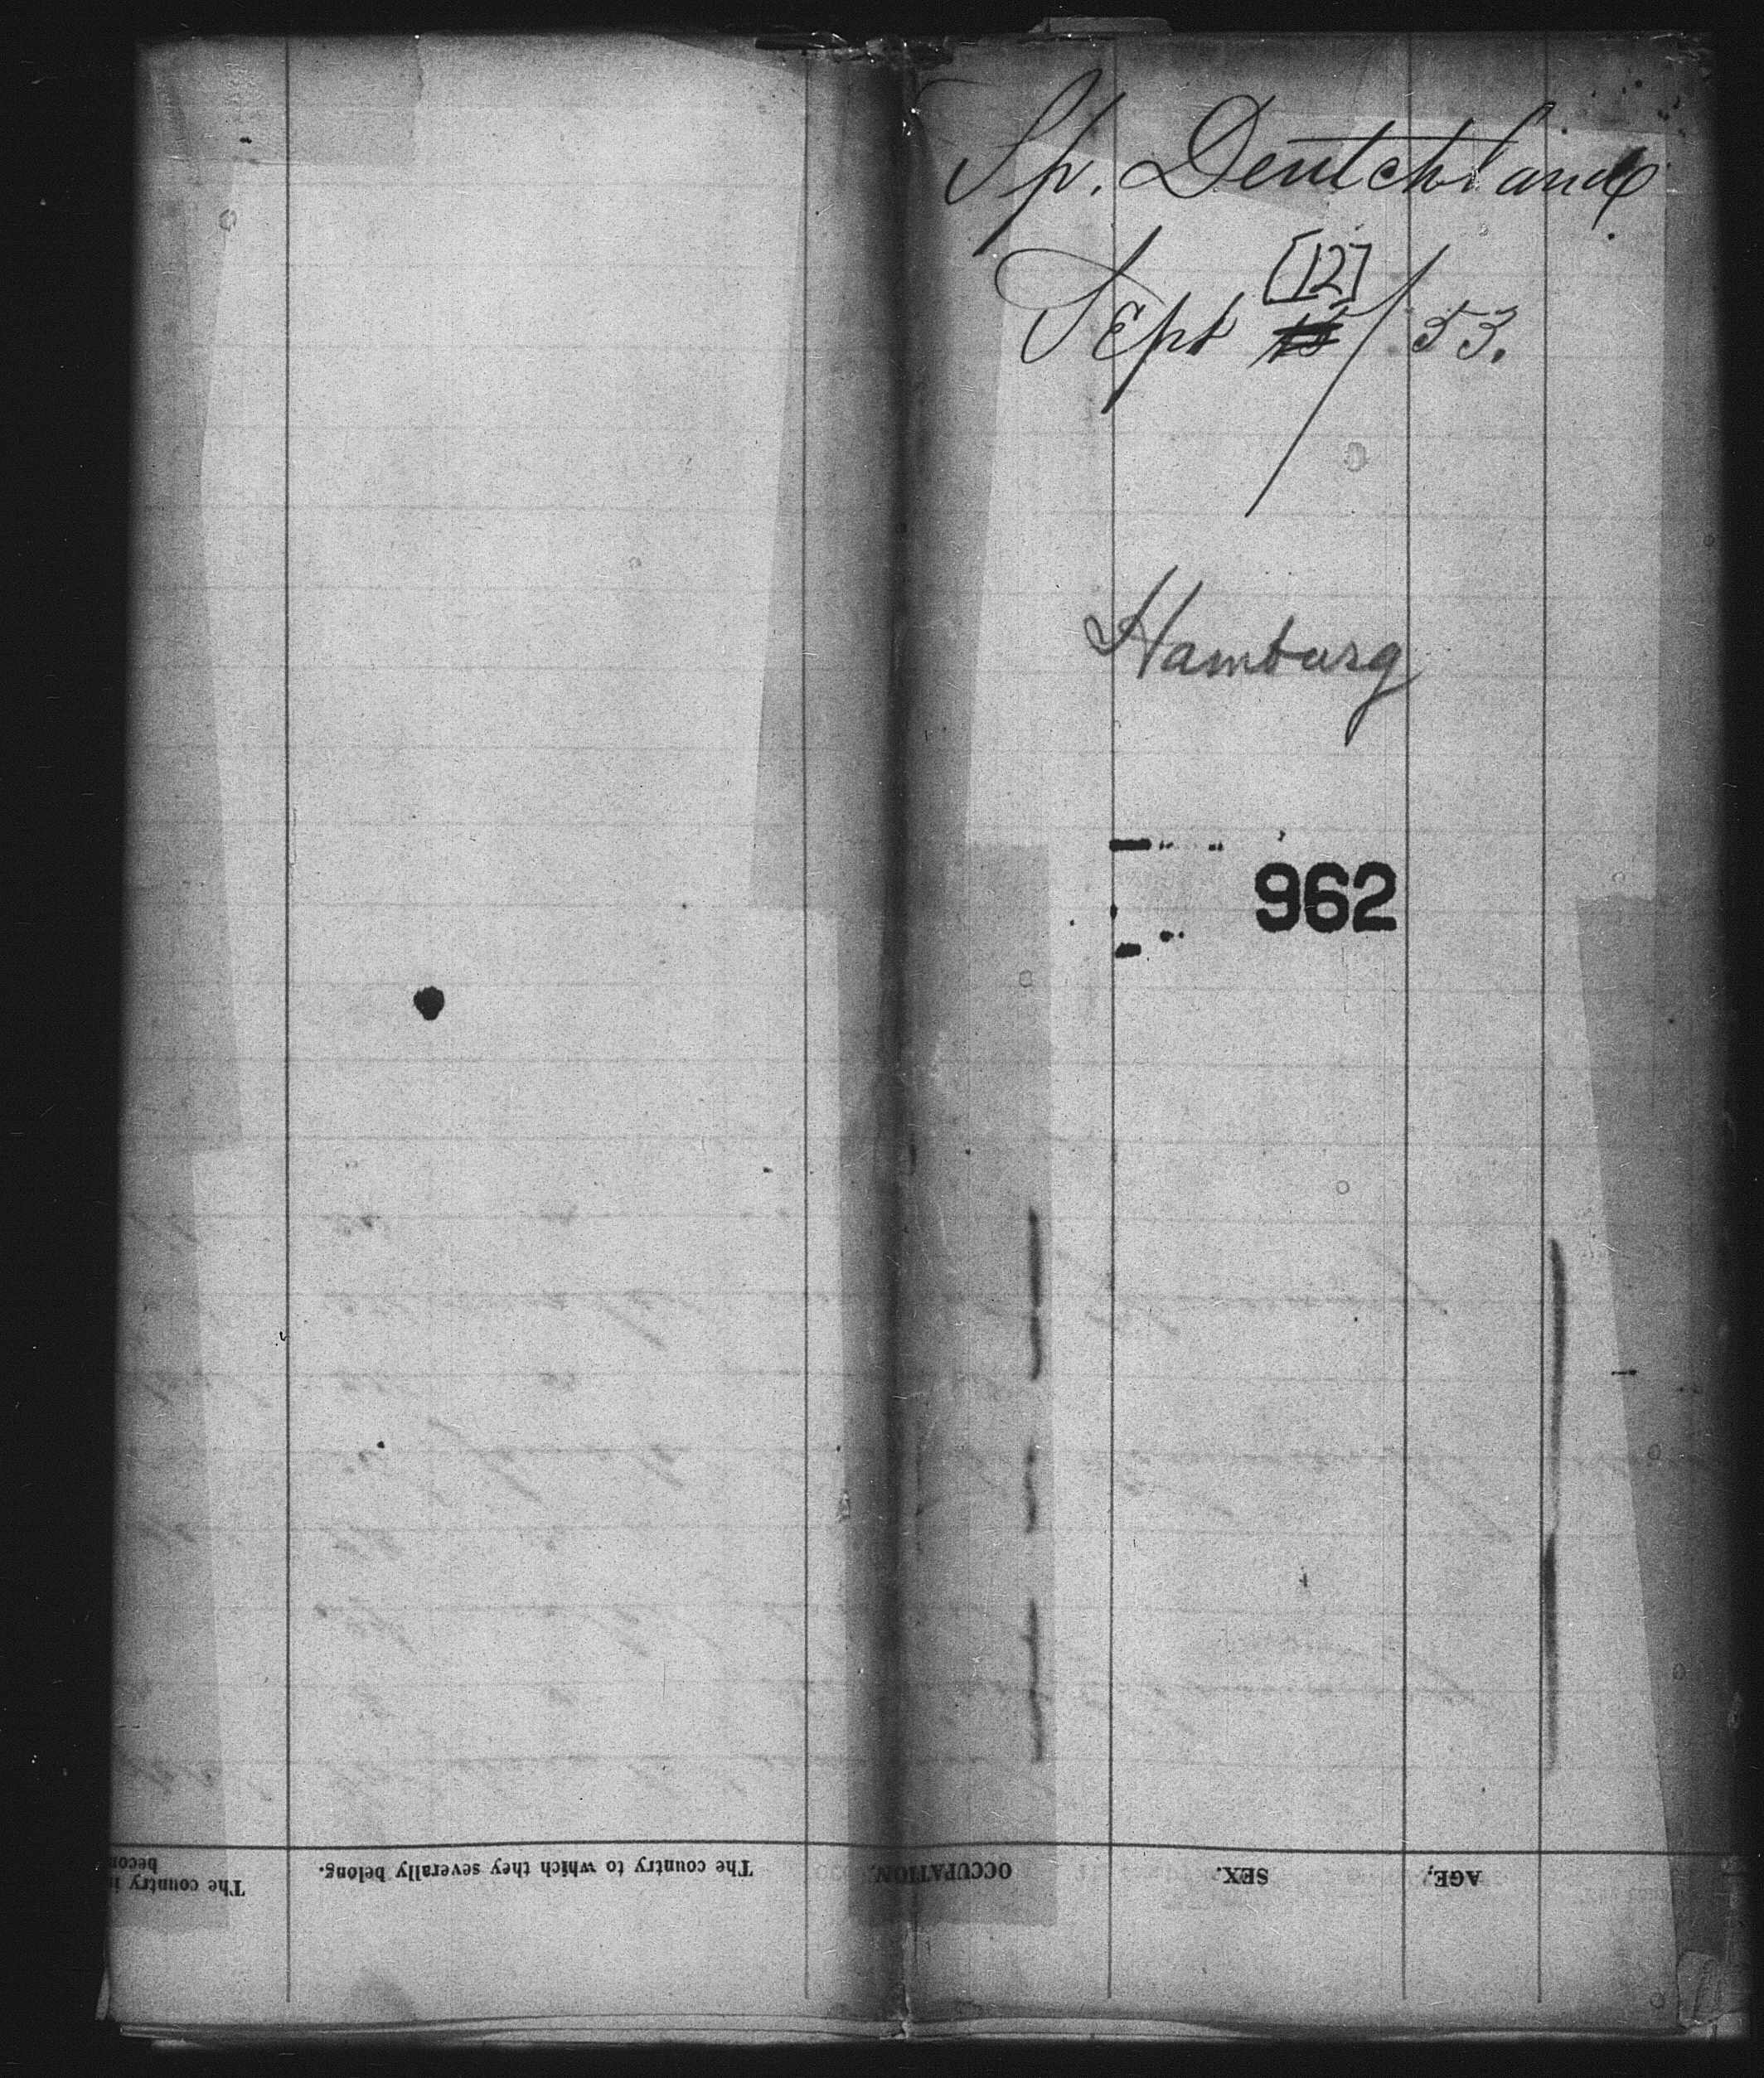 Sp. Deutchland
Sept 13 [12] / 53.
Hamburg
962
AGE.
SEX.
OCCUPATION.
The country to which they severally belong.
The country i
becom